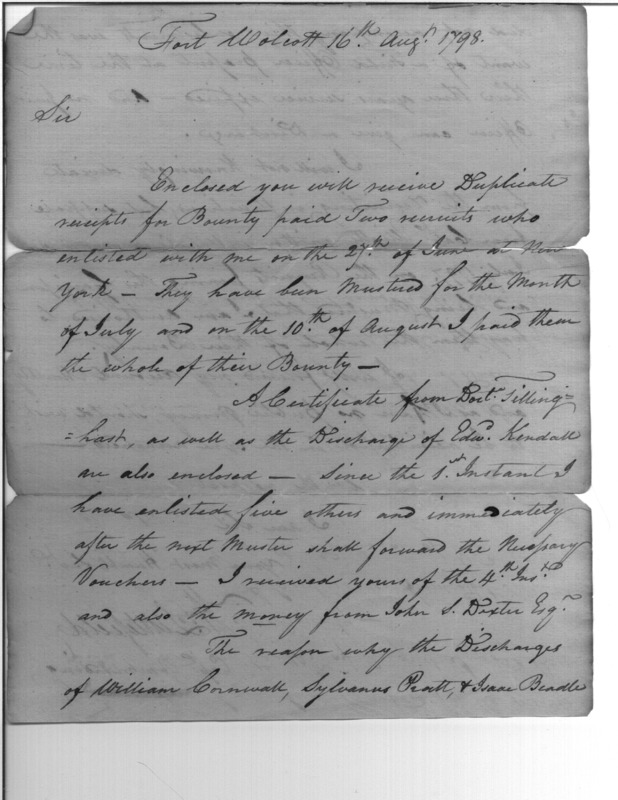 Fort Wolcott 16th. Augt. 1798.
Sir
Enclosed you will receive Duplicate
receipts for Bounty paid Two recruits who
enlisted with me on the 27th. of June at New
York — They have been Mustered for the Month
of July and on the 10th. of August I paid them
the whole of their Bounty —
A Certificate from Doctr. Tilling=
=hast, as well as the Discharge of Edwd. Kendall
are also enclosed — Since the 1st. Instant I
have enlisted five others and immediately
after the next Muster shall forward the Necessary
Vouchers — I received yours of the 4th. Inst.
and also the money from John S. Dexter Esqr.
The reason why the Discharges
of William Cornwall, Sylvanus Pratt, & Isaac Beadle